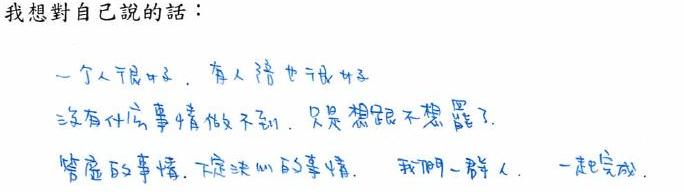 我想對自己說的話：
一个人很好. 有人陪也很好
沒有什麼事情做不到. 只是想跟不想罷了.
答應的事情. 下定決心的事情. 我們一群人. 一起完成.